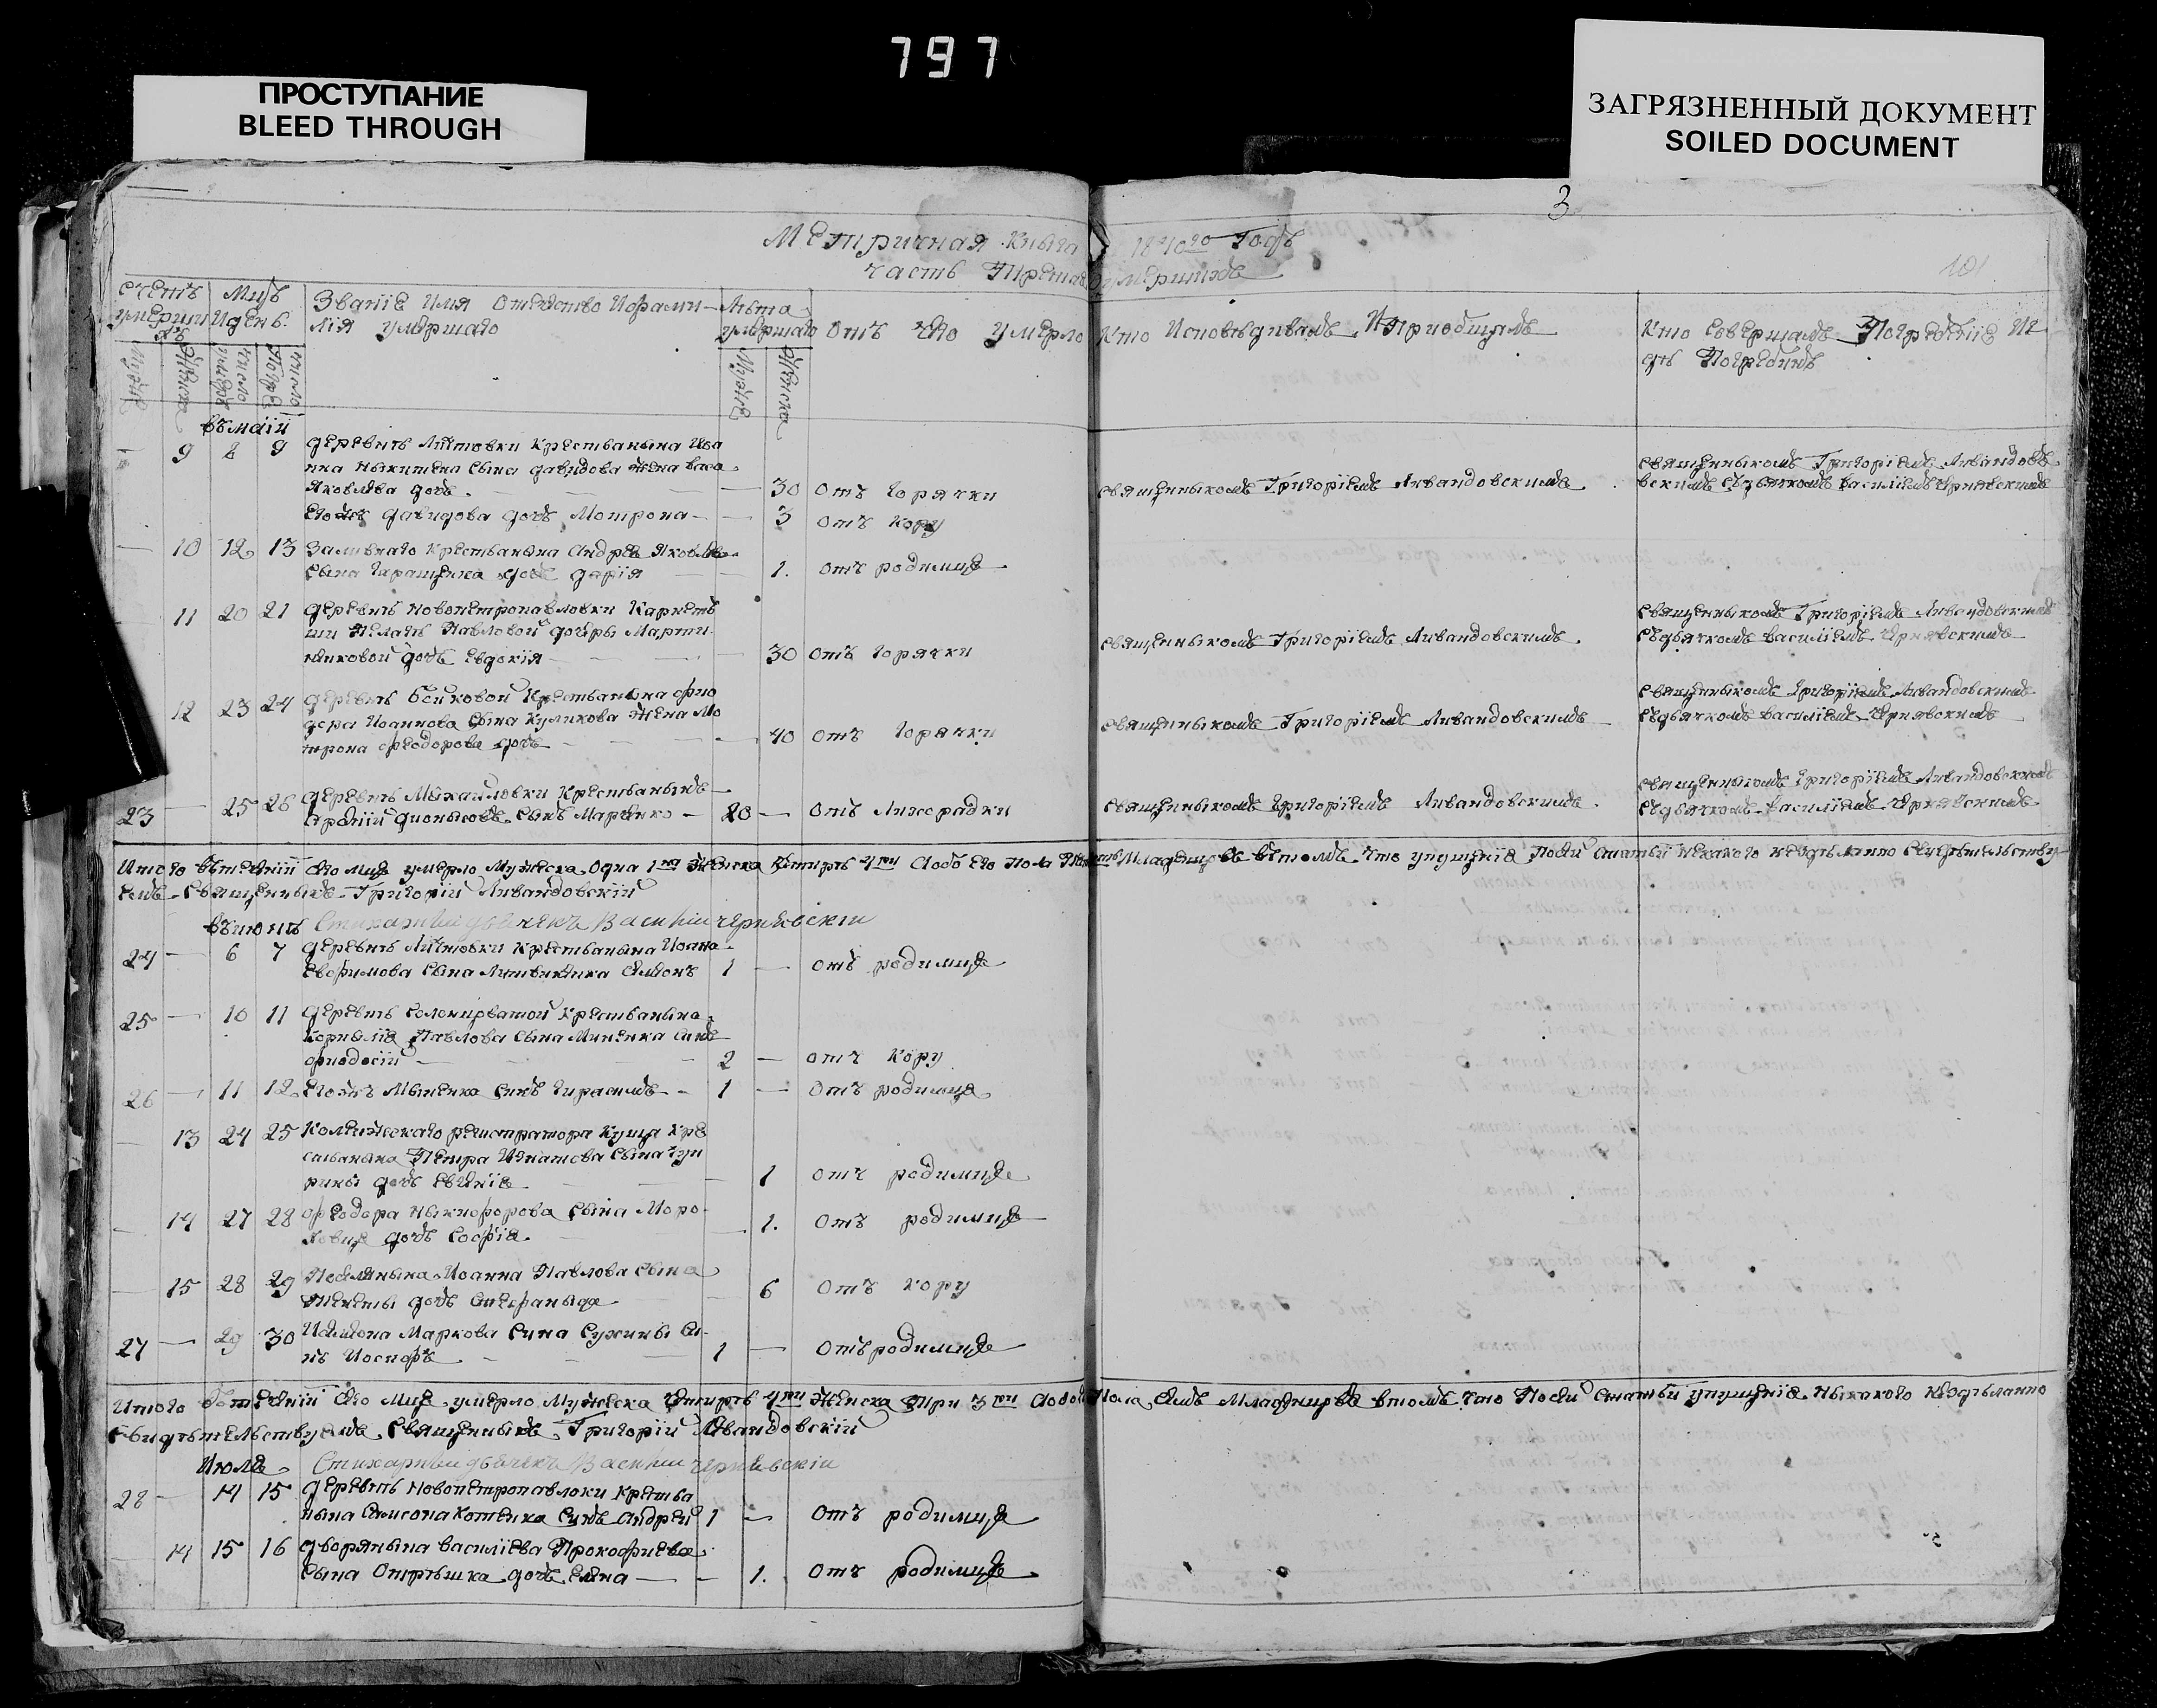 797
ПРОСТУПАНИЕ
BLEED THROUGH
ЗАГРЯЗНЕННЫЙ ДОКУМЕНТ
SOILED DOCUMENT
3
101
Метричная книга 1840го Года
часть Третая о умершихъ
счетъ умерши
Мцъ и день
Званïе Имя Отечество И фами-
лïя умершаго
Лѣта умершаго
отъ чего умерло
Кто Исповѣдивалъ И Приобщалъ
Кто совершалъ Погребенïе И г
дѣ Погребенъ
Мужеск
Женска
число
число
Мужеск
Женска
въ маïи
9 8 9 деревнѣ Литовки Крестьянына Ива
нка Ныкитена сына давидова жена васа
Яковлева дочь 30 отъ Горячки
священыкомъ Григорïемъ Ливандовскимъ
священыкомъ Григорïемъ Ливандов
вскимъ съ дьячкомъ василïемъ Чернявскимъ
Егожъ давидова дочь Мотрона 3 отъ кору
10 12 13 Заливнаго Крестьянына Андрея Яковлева
сына Геращенка дочь дарïя 1. отъ родимца
11 20 21 деревнѣ новопетропавловки
Павловой дочеры Марти
нѣнковой дочь Евдокïя 30 отъ горячки
священыкомъ Григорïемъ Ливандовскимъ
священыкомъ Григорïемъ Ливандовскимъ
съ дьячкомъ василïемъ Чернявскимъ
12 23 24 деревнѣ Бойковой Крестьянына фио
дора Иоаннова сына Куликова жена Мо
трона феодорова дочь 40 отъ горячки
священыкомъ Григорïемъ Ливандовскимъ
священыкомъ Григорïемъ Ливандовскимъ
съ дьячкомъ василïемъ Чернявскимъ
23 25 26 деревнѣ Мыхайловки Крестьянынъ
дионысовъ сынъ Марченко 20 отъ Лихорадки
священыкомъ Григорïемъ Ливандовскимъ
священыкомъ Григорïемъ Ливандовскимъ
съ дьячкомъ василïемъ Чернявскимъ
Итого въ теченïи сего мца умерло Мужеска Одна 1на Женска Четирѣ 4ри Обоего пола Пять Младенцовъ вътомъ что упущенïя Посей статьи некакого нездѣланно свидѣтельству
емъ Священныкъ Григорïи Ливандовскïй
въ июнѣ Стихарный дьячекъ Василïи чернявскïи
24 6 7 деревнѣ Литовки Крестьянына Иоана
Евфимова сына Литвиненка Симеонъ 1 отъ родимца
25 10 11 деревнѣ Солонцоватой Крестьянына
Корнылïя Павлова сына Миненка синъ
фиодосïй 2 отъ кору
26 11 12 Егожъ Мыненка синъ Гирасимъ 1 отъ родимца
13 24 25 Коллежскаго регистратора Куща Кре
стьянына Петра Игнатова сына Чуп
рины дочь Евгенïя 1 отъ родимца
14 27 28 феодора Ныкифорова сына Моро
ховца дочь Софïя 1. отъ родимца
15 28 29 Поселянына Иоанна Павлова сына
дочь Стефаныда 6 отъ кору
27 29 30 Симеона Маркова сина Сухины си
нъ Иосифъ 1 отъ родимца
Итого въ теченïи сего мца умерло Мужеска Четирѣ 4ри Женска Три 3ри Обоего Пола Семъ Младенцовъ втомъ что Посей Статьи упущенïя ныкакого нездѣланно
свидѣтельствуемъ Священныкъ Григорïй Ливандовскïй
Июля Стихарный дьячекъ Василïи чернявскïи
28 14 15 деревнѣ Новопетропавлоки Крестья
нына Самсона Котенка синъ Андрей 1 отъ родимца
14 15 16 дворянына василïева Прокофиева
сына Отрѣшка дочь Елена 1. отъ родимца